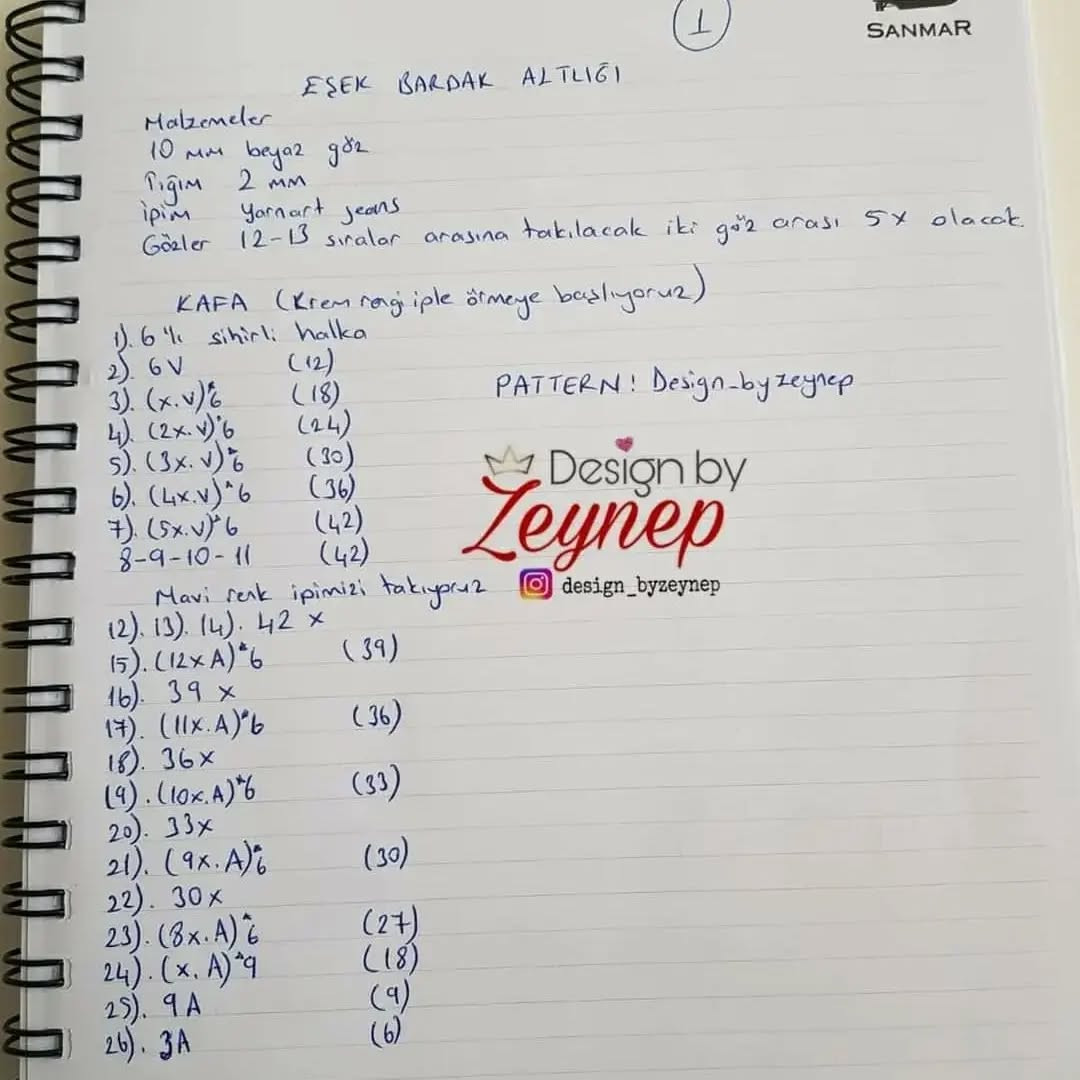 1
SANMAR
EŞEK BARDAK ALTLIĞI
Malzemeler
10 mm beyaz göz
Tığım 2 mm
ipim Yarnart jeans
Gözler 12-13 sıralar arasına takılacak iki göz arası 5x olacak.
KAFA (Krem rengi iple örmeye başlıyoruz)
1). 6'lı sihirli halka
2). 6V (12)
3). (x.v)*6 (18)
PATTERN! Design_byzeynep
4). (2x.v)*6 (24)
5). (3x.v)*6 (30)
6). (4x.v)*6 (36)
7). (5x.v)*6 (42)
8-9-10-11 (42)
Design by
Zeynep
design_byzeynep
Mavi renk ipimizi takıyoruz
12). 13). 14). 42 x
15). (12xA)*6 (39)
16). 39 x
17). (11x.A)*6 (36)
18). 36x
19). (10x.A)*6 (33)
20). 33x
21). (9x.A)*6 (30)
22). 30x
23). (8x.A)*6 (27)
24). (x.A)*9 (18)
25). 9A (9)
26). 3A (6)